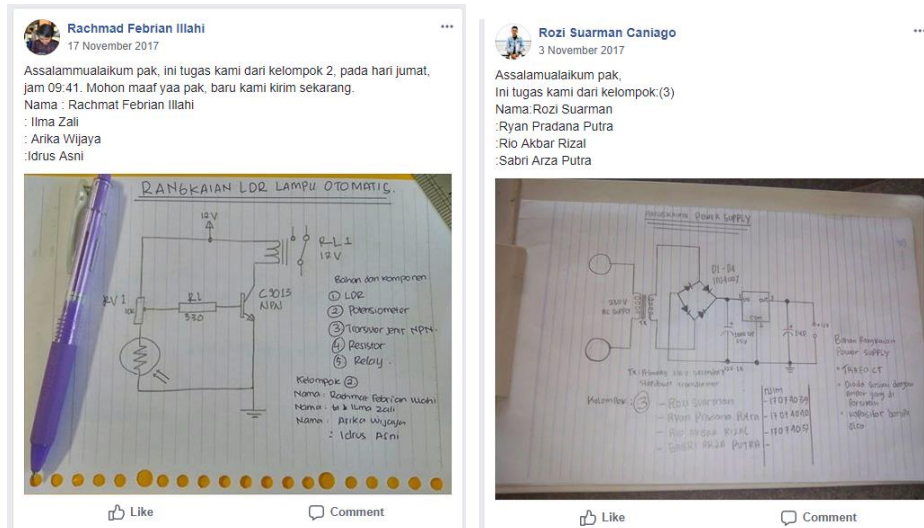 Rachmad Febrian Illahi
17 November 2017
Assalammualaikum pak, ini tugas kami dari kelompok 2, pada hari jumat,
jam 09:41. Mohon maaf yaa pak, baru kami kirim sekarang.
Nama : Rachmat Febrian Illahi
: Ilma Zali
: Arika Wijaya
:Idrus Asni
RANGKAIAN LDR LAMPU OTOMATIS.
12V
RL1
12V
RV1
10K
R1
330
C9013
NPN
Bahan dan komponen
① LDR
② Potensiometer
③ Transistor jenis NPN.
④ Resistor
⑤ Relay.
Kelompok ②
Nama : Rachmat Febrian Illahi
Nama : Ilma Zali
Nama : Arika Wijaya
: Idrus Asni
Like
Comment
Rozi Suarman Caniago
3 November 2017
Assalamualaikum pak,
Ini tugas kami dari kelompok:(3)
Nama:Rozi Suarman
:Ryan Pradana Putra
:Rio Akbar Rizal
:Sabri Arza Putra
Power SUPPLY
D1-D4
AC SUPPLY
Bahan Rangkaian
Power SUPPLY
• TRAFO CT
Kelompok : ③
- Rozi Suarman
- Ryan Pradana Putra
- RIO AKBAR RIZAL
- SABRI ARZA PUTRA
NIM
Like
Comment